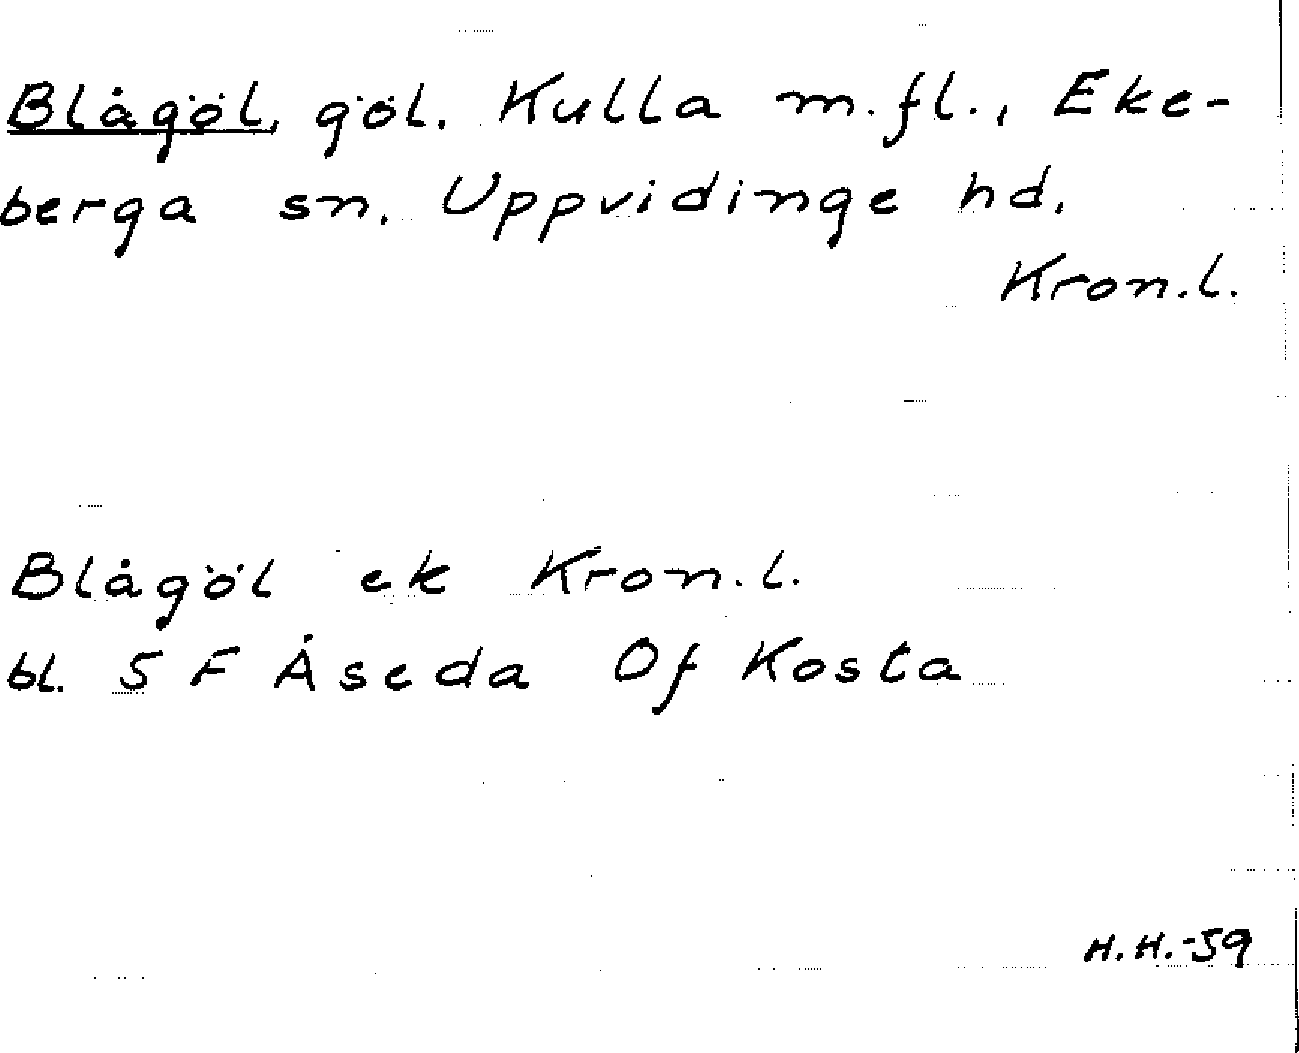 Blågöl, göl. Kulla m.fl., Eke-
berga sn. Uppvidinge hd.
Kron.l.
Blågöl ek Kron.l.
bl. 5 F Åseda Of Kosta
H.H.-59